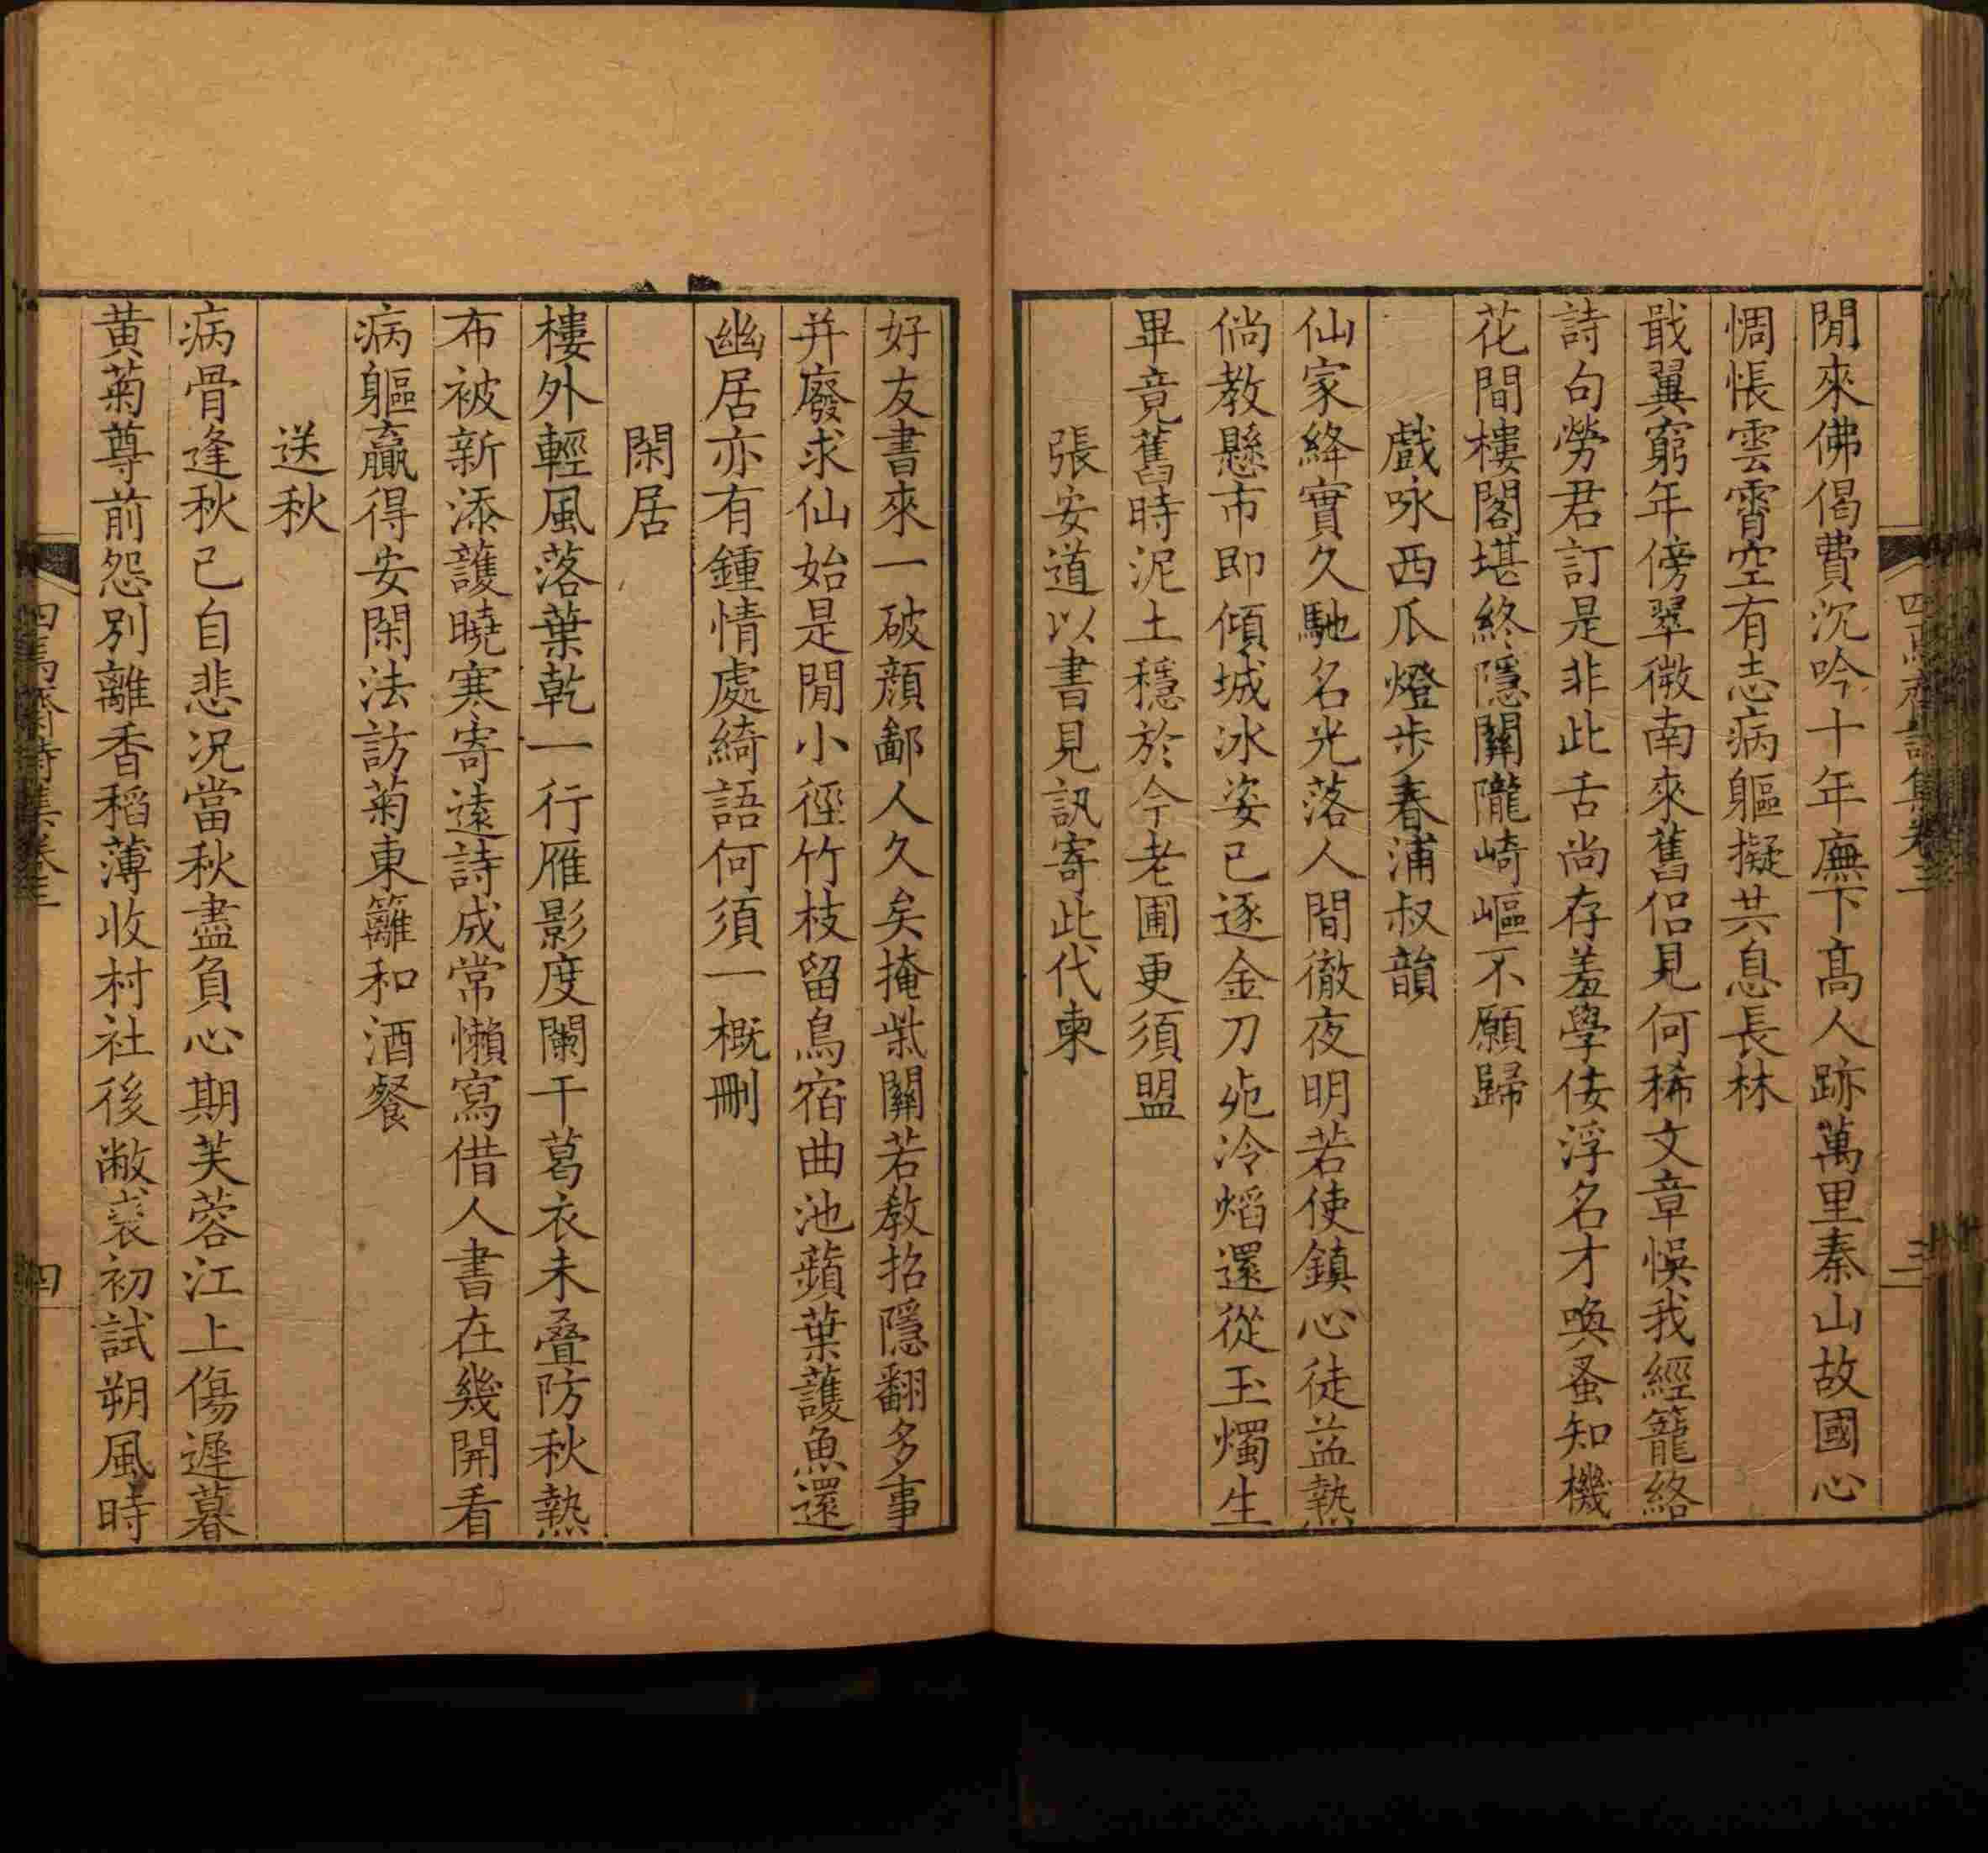 閒來佛偈費沉吟十年廡下高人跡萬里秦山故國心
惆悵雲霄空有志病軀擬共息長林
戢翼窮年傍翠微南來舊侣見何稀文章悞我經籠絡
詩句勞君訂是非此舌尚存羞學佞浮名才喚蚤知機
花間樓閣堪終隱關隴崎嶇不願歸
戲咏西瓜燈步春浦叔韻
仙家絳實久馳名光落人間徹夜明若使鎮心徒益熱
倘教懸市即傾城冰姿已逐金刀㐌冷熖還從玉燭生
畢竟舊時泥土穩於今老圃更須盟
張安道以書見訊寄此代柬
好友書來一破顔鄙人久矣掩柴關若教招隱翻多事
并廢求仙始是閒小徑竹枝留鳥宿曲池蘋葉護魚還
幽居亦有鍾情處綺語何須一概刪
閑居
樓外輕風落葉乾一行雁影度闌干葛衣未叠防秋熱
布被新添護曉寒寄遠詩成常懶寫借人書在幾開看
病軀贏得安閑法訪菊東籬和酒餐
送秋
病骨逢秋已自悲況當秋盡負心期芙蓉江上傷遲暮
黄菊尊前怨別離香稻薄收村社後敝裘初試朔風時
三
四